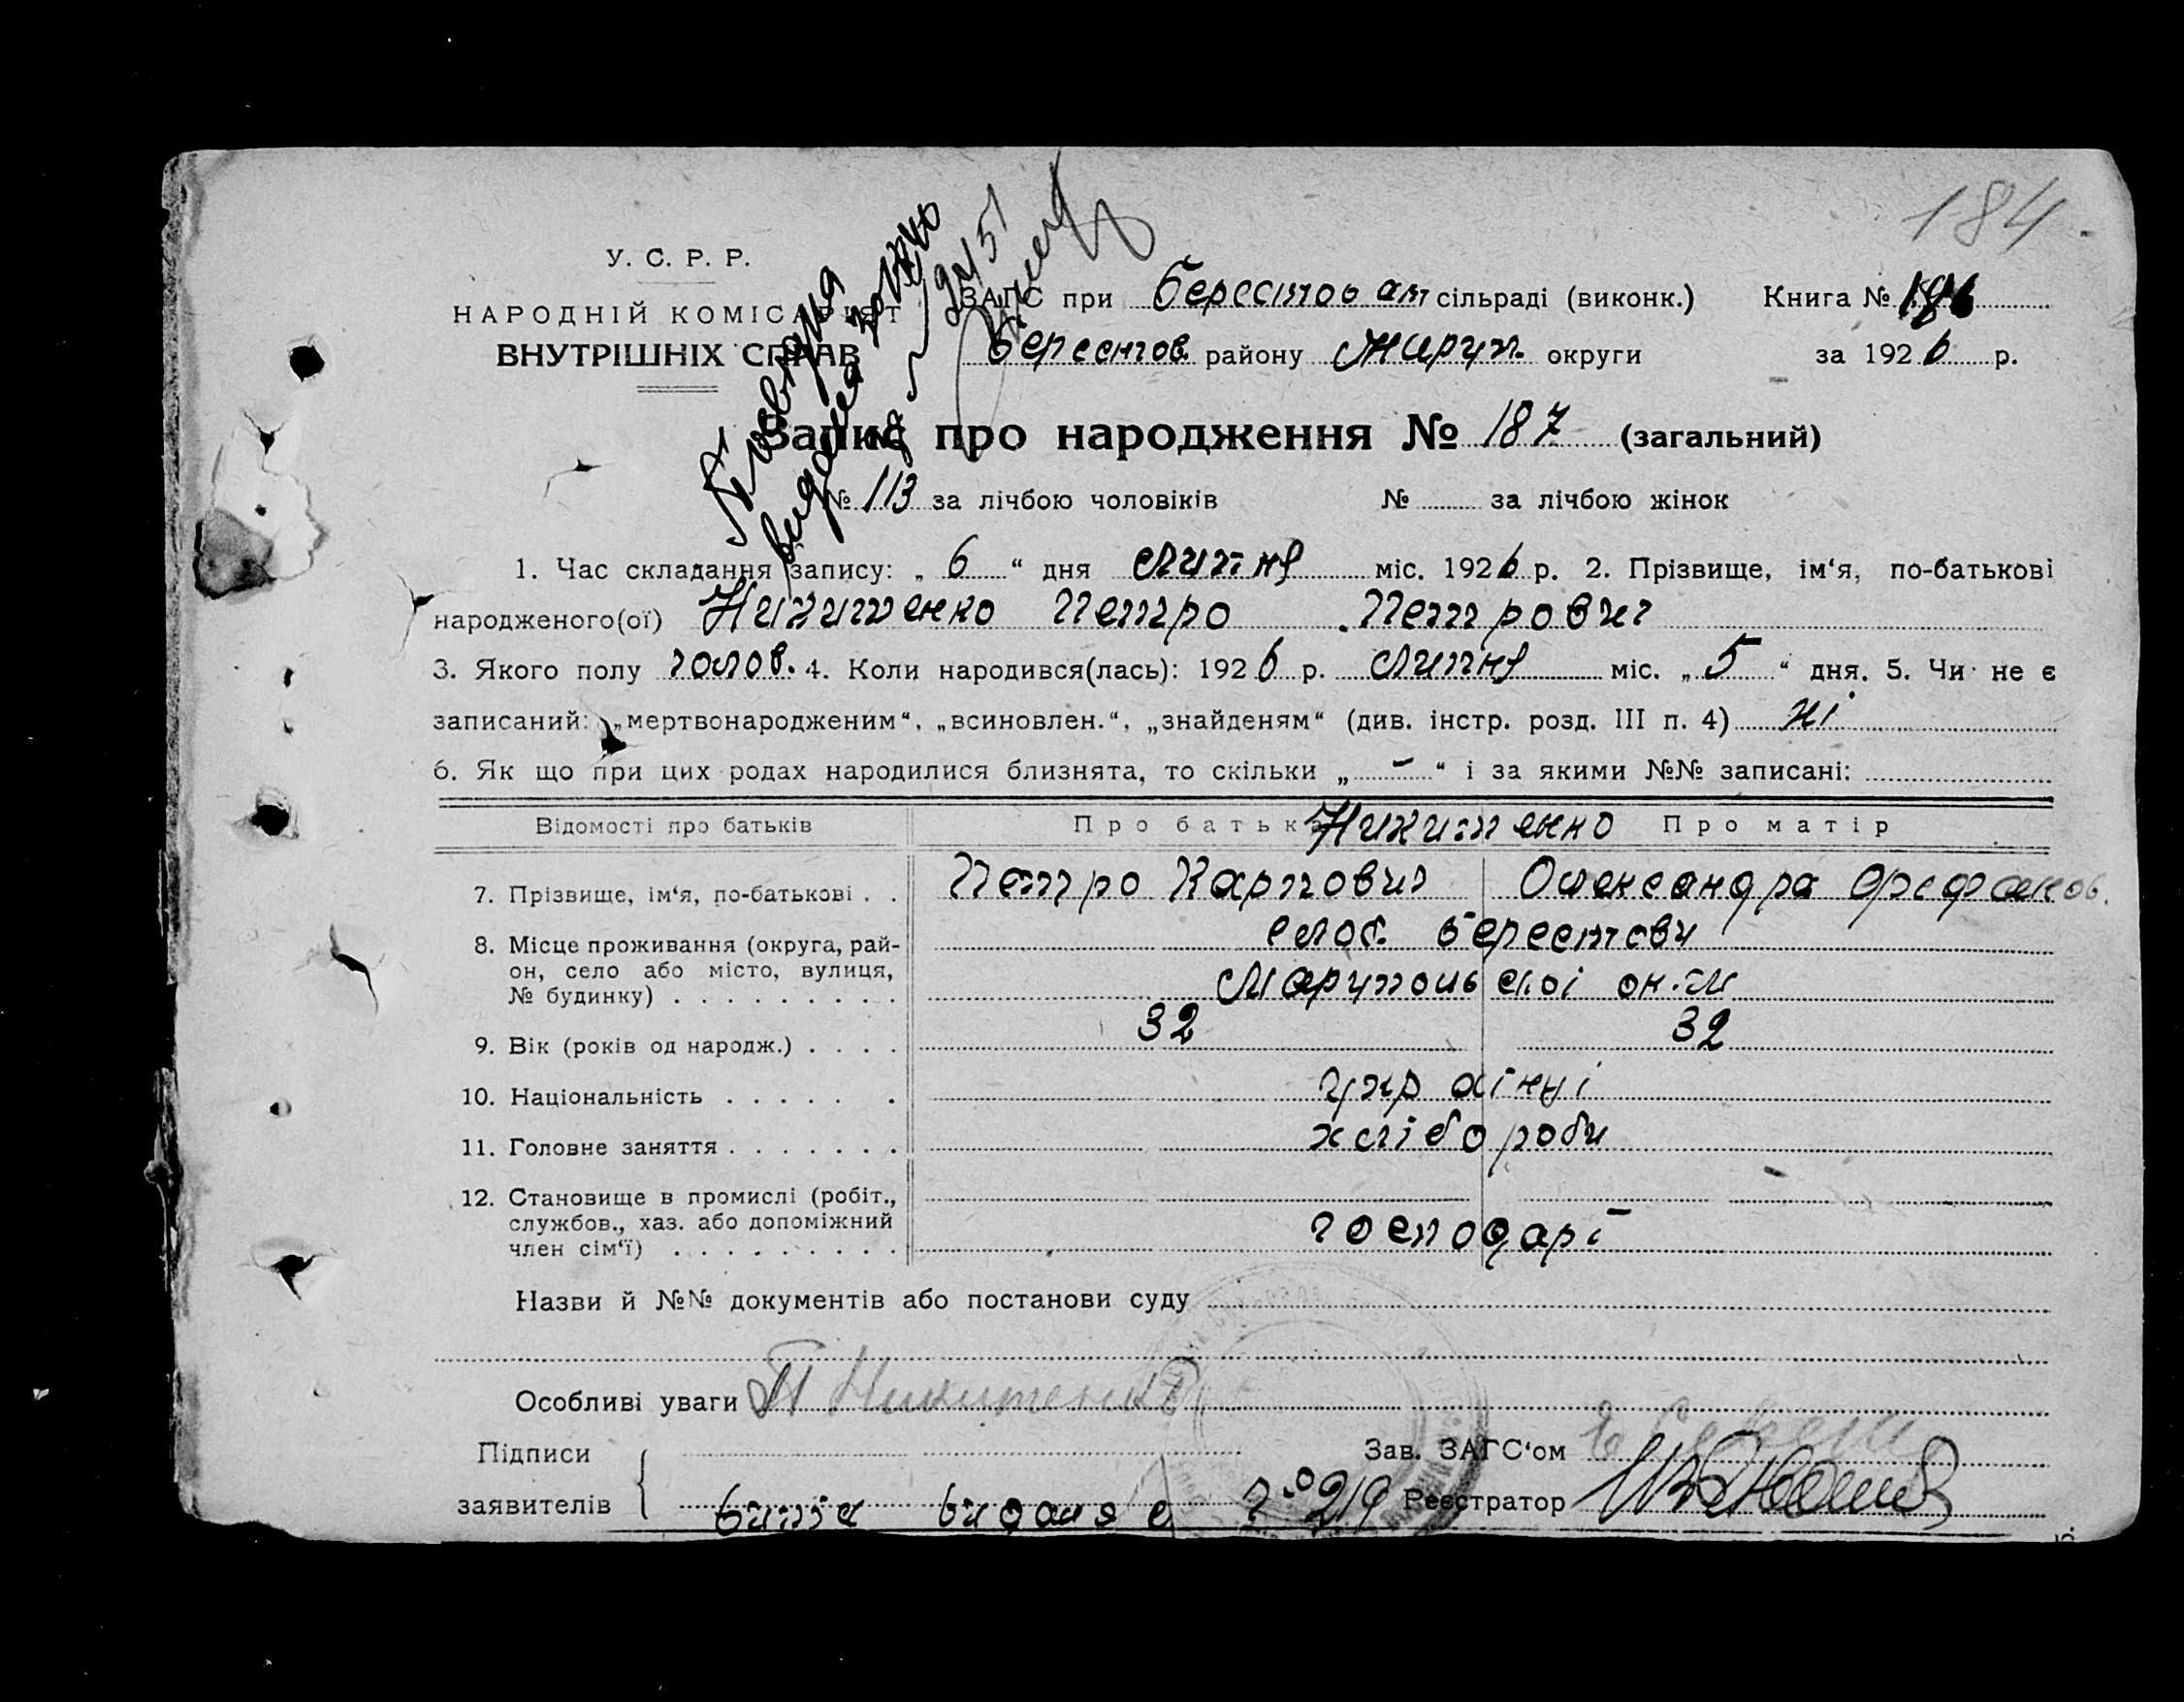 184
У. С. Р. Р.
НАРОДНІЙ КОМІСАРІЯТ
ВНУТРІШНІХ СПРАВ
ЗАГС при Берестов сільраді (виконк.) Книга №
Берестов. району Маруп. округи за 1926 р.
Запис про народження № 187 (загальний)
№ 113 за лічбою чоловіків № за лічбою жінок
1. Час складання запису: „ 6 “ дня Липня міс. 1926 р. 2. Прізвище, ім‘я, по-батькові
народженого(ої) Никитенко Петро Петрович
3. Якого полу чолов. 4. Коли народився(лась): 1926 р. Липня міс. „ 5 “ дня. 5. Чи не є
записаний: „мертвонародженим“, „всиновлен.“, „знайденям“ (див. інстр. розд. III п. 4) ні
6. Як що при цих родах народилися близнята, то скільки „ – “ і за якими №№ записані:
Відомості про батьків Про батька Никитенко Про матір
7. Прізвище, ім‘я, по-батькові . . Петро Карпович Олександра
8. Місце проживання (округа, рай-
он, село або місто, вулиця,
№ будинку) . . . . . . . . .
слоб. Берестови
Марупольської ок.
9. Вік (років од народж.) . . . . 32 32
10. Національність . . . . . . українці
11. Головне заняття . . . . . . . хлібороби
12. Становище в промислі (робіт.,
службов., хаз. або допоміжний
член сім‘ї) . . . . . . . . . господарі
Назви й №№ документів або постанови суду
Особливі уваги П Никитенко
Підписи
заявителів
Зав. ЗАГС‘ом
Реєстратор
видана 219